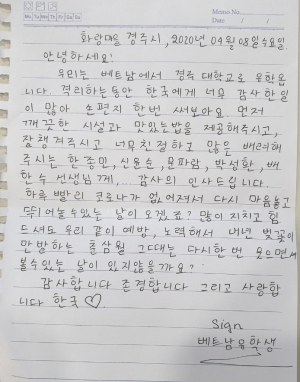 Memo No.
Mo Tu We Th Fr Sa Su
Date / /
화랑마을 경주시, 2020년 04월 08일 수요일.
안녕하세요!
우리는 베트남에서 경주 대학교로 유학옵
니다. 격리하는동안 한국에게 너무 감사한일
이 많아 손편지 한번 써보아요. 먼저
깨끗한 시설과 맛있는밥을 제공해주시고,
잘챙겨주시고 너무친절하고 많은 배려해
주시는 한종민, 신윤순, 문파람, 박성환, 배
한수 선생님께, 감사의 인사드립니다.
하루 빨리 코로나가 없어져서 다시 마음놓고
뛰어놀수있는 날이 오겠죠? 많이 지치고 힘
드셔도 우리 같이 예방, 노력해서 내년 벚꽃이
만발하는 춘삼월 그때는 다시한번 웃으면서
볼수있는 날이 있지않을까요?
감사합니다 존경합니다 그리고 사랑합
니다 한국 ♡.
Sign
베트남유학생